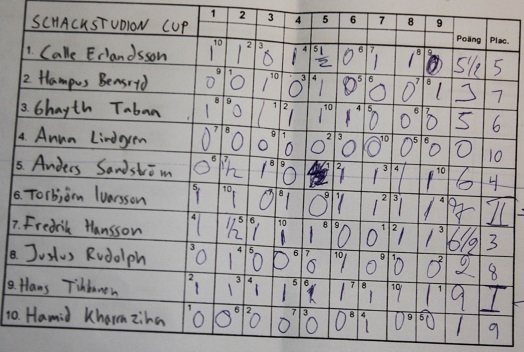 SCHACKSTUDION CUP 1 2 3 4 5 6 7 8 9 Poäng Plac.
1. Calle Erlandsson 10 1 2 1 3 0 4 1 5 ½ 6 0 7 1 8 1 9 0 5½ 5
2. Hampus 9 0 1 0 10 1 3 0 4 1 5 0 6 0 7 0 8 1 3 7
3. Ghayth Taban 8 1 9 0 1 1 2 1 10 1 4 1 5 0 6 0 7 0 5 6
4. Anna Lindgren 7 0 8 0 9 0 1 0 2 0 3 0 10 0 5 0 6 0 0 10
5. Anders Sandström 6 0 7 ½ 8 1 9 0 1 2 1 3 1 4 1 10 1 6 4
6. Torbjörn Ivarsson 5 1 10 1 7 0 8 1 9 0 1 1 2 1 3 1 4 1 7 II
7. Fredrik Hansson 4 1 5 ½ 6 1 10 1 8 1 9 0 1 0 2 1 3 1 6½ 3
8. Justus Rudolph 3 0 4 1 5 0 6 0 7 0 10 1 9 0 1 0 2 0 2 8
9. Hans Tikkanen 2 1 3 1 4 1 5 1 6 1 7 1 8 1 10 1 1 1 9 I
10. Hamid 1 0 6 0 2 0 7 0 3 0 8 0 4 1 9 0 5 0 1 9